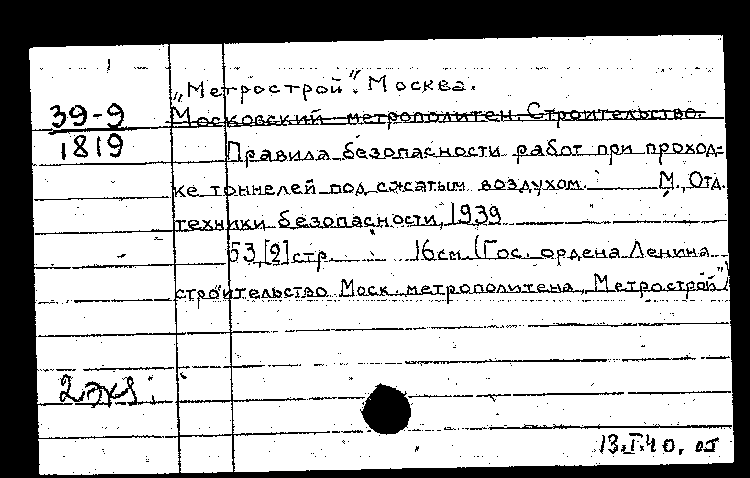 „Метрострой". Москва.
39-9
Московский метрополитен. Строительство.
1819
Правила безопасности работ при проход-
ке тоннелей под сжатым воздухом. М., Отд.
техники безопасности, 1939
53,[2] стр. 16см. (Гос. ордена Ленина
строительство Моск. метрополитена „Метрострой")
2 экз.
13.I.40.